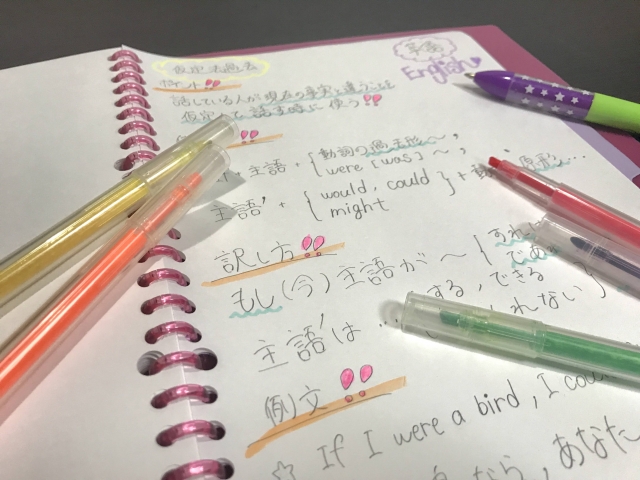 英語
English
仮定法過去
ポイント!!
話している人が現在の事実と違うことを
仮定して話す時に使う!!
!!
主語 + { 動詞の過去形 〜,
were [was] 〜,
主語' + { would, could
might } + 動 原形...
訳し方!!
もし (今) 主語が 〜 { すれ
であ
主語'は ... する, できる
れない }
例文!!
☆ If I were a bird, I cou
なら, あなた